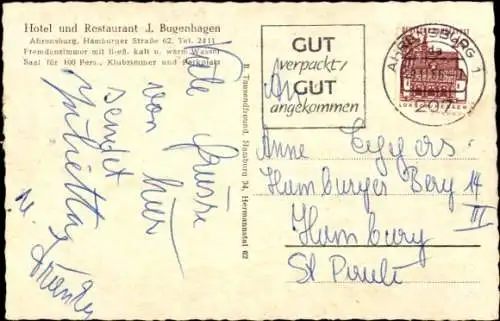 Hotel und Restaurant J. Bugenhagen
Ahrensburg, Hamburger Straße 62, Tel. 2411
Fremdenzimmer mit fließ. kalt u. warm Wasser
Saal für 100 Pers., Klubzimmer und Parkplatz
Viele Grüsse
von hier
sendet
B. Tausendfreund, Hamburg 34, Hermannstal 62
GUT
verpackt,
GUT
angekommen
AHRENSBURG 1
207
An
Anne Eggers
Hamburger Berg 14
III
Hamburg
St Pauli